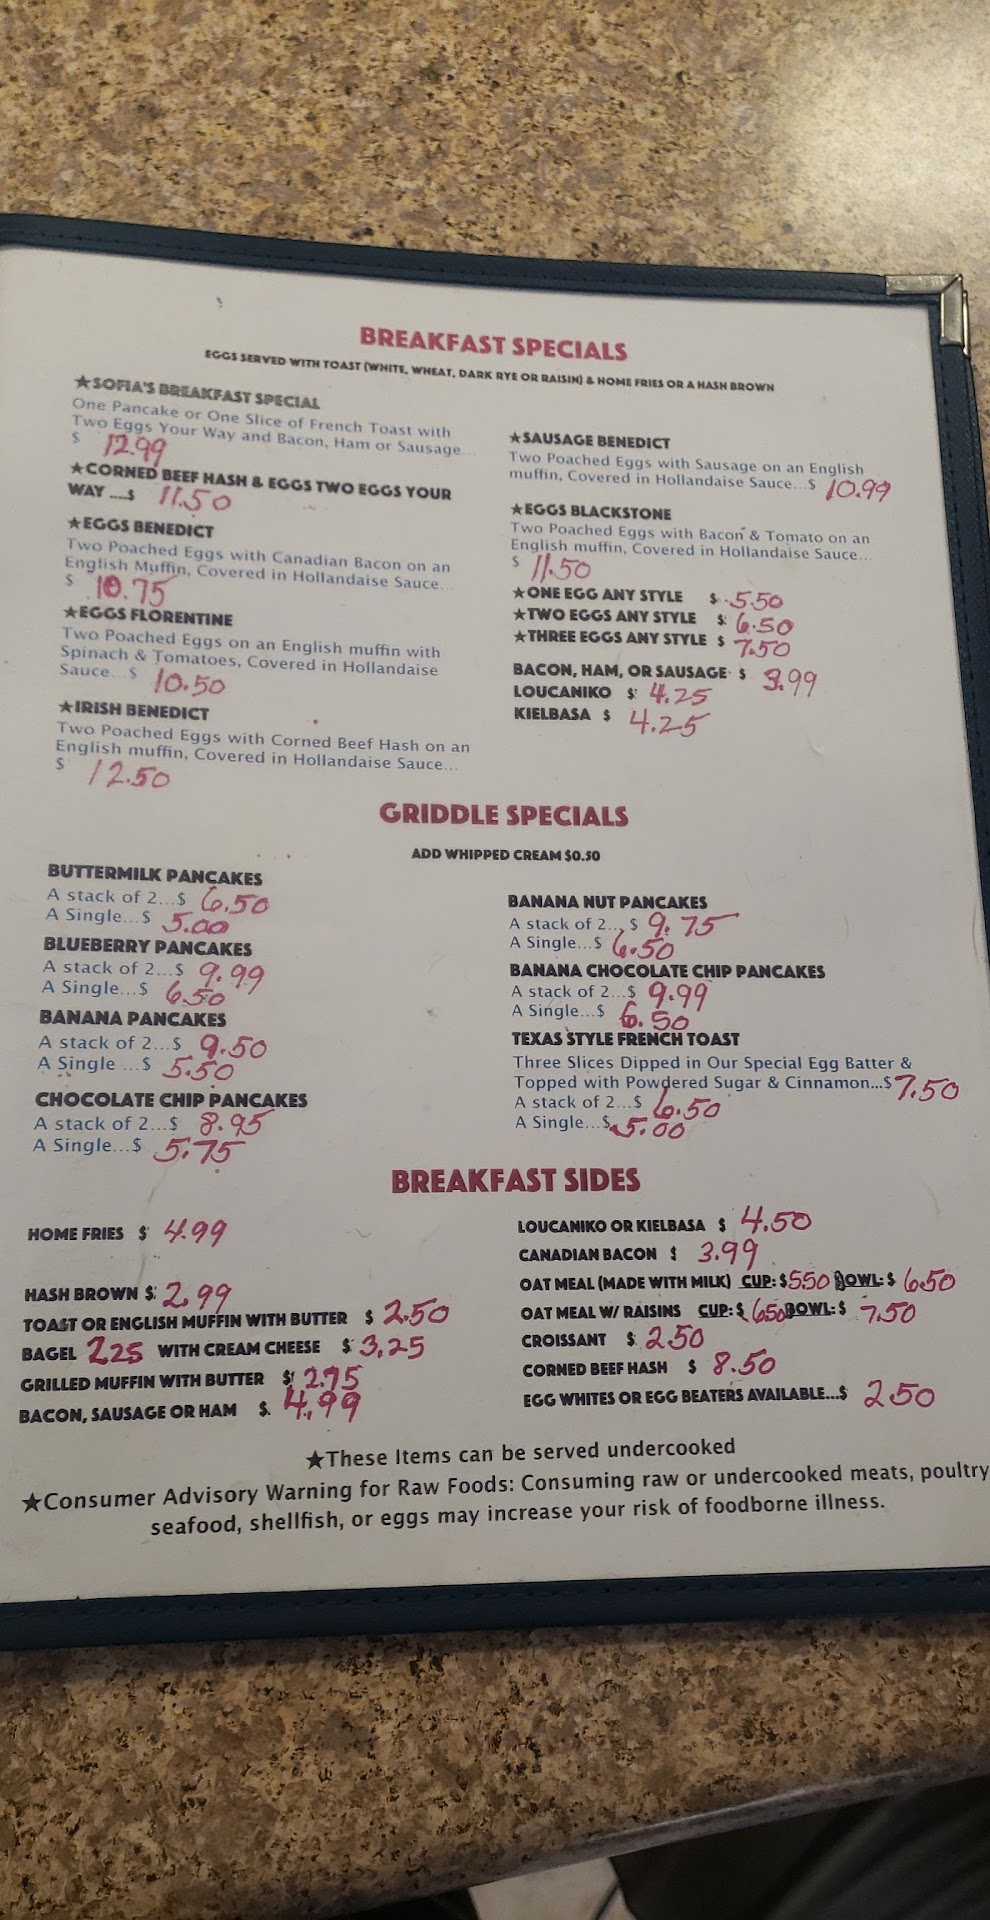 BREAKFAST SPECIALS
EGGS SERVED WITH TOAST (WHITE, WHEAT, DARK RYE OR RAISIN) & HOME FRIES OR A HASH BROWN
★SOFIA'S BREAKFAST SPECIAL
One Pancake or One Slice of French Toast with
Two Eggs Your Way and Bacon, Ham or Sausage...
$ 12.99
★CORNED BEEF HASH & EGGS TWO EGGS YOUR
WAY ....$ 11.50
★EGGS BENEDICT
Two Poached Eggs with Canadian Bacon on an
English Muffin, Covered in Hollandaise Sauce...
$ 10.75
★EGGS FLORENTINE
Two Poached Eggs on an English muffin with
Spinach & Tomatoes, Covered in Hollandaise
Sauce...$ 10.50
★IRISH BENEDICT
Two Poached Eggs with Corned Beef Hash on an
English muffin, Covered in Hollandaise Sauce...
$ 12.50
★SAUSAGE BENEDICT
Two Poached Eggs with Sausage on an English
muffin, Covered in Hollandaise Sauce...$ 10.99
★EGGS BLACKSTONE
Two Poached Eggs with Bacon & Tomato on an
English muffin, Covered in Hollandaise Sauce...
$ 11.50
★ONE EGG ANY STYLE $ 5.50
★TWO EGGS ANY STYLE $ 6.50
★THREE EGGS ANY STYLE $ 7.50
BACON, HAM, OR SAUSAGE $ 3.99
LOUCANIKO $ 4.25
KIELBASA $ 4.25
GRIDDLE SPECIALS
ADD WHIPPED CREAM $0.50
BUTTERMILK PANCAKES
A stack of 2...$ 6.50
A Single...$ 5.00
BLUEBERRY PANCAKES
A stack of 2...$ 9.99
A Single...$ 6.50
BANANA PANCAKES
A stack of 2...$ 9.50
A Single ...$ 5.50
CHOCOLATE CHIP PANCAKES
A stack of 2...$ 8.95
A Single...$ 5.75
BANANA NUT PANCAKES
A stack of 2...$ 9.75
A Single...$ 6.50
BANANA CHOCOLATE CHIP PANCAKES
A stack of 2...$ 9.99
A Single...$ 6.50
TEXAS STYLE FRENCH TOAST
Three Slices Dipped in Our Special Egg Batter &
Topped with Powdered Sugar & Cinnamon...$ 7.50
A stack of 2...$ 6.50
A Single...$ 5.00
BREAKFAST SIDES
HOME FRIES $ 4.99
HASH BROWN $ 2.99
TOAST OR ENGLISH MUFFIN WITH BUTTER $ 2.50
BAGEL 2.25 WITH CREAM CHEESE $ 3.25
GRILLED MUFFIN WITH BUTTER $ 2.75
BACON, SAUSAGE OR HAM $ 4.99
LOUCANIKO OR KIELBASA $ 4.50
CANADIAN BACON $ 3.99
OAT MEAL (MADE WITH MILK) CUP: $ 5.50 BOWL: $ 6.50
OAT MEAL W/ RAISINS CUP: $ 6.50 BOWL: $ 7.50
CROISSANT $ 2.50
CORNED BEEF HASH $ 8.50
EGG WHITES OR EGG BEATERS AVAILABLE...$ 2.50
★These Items can be served undercooked
★Consumer Advisory Warning for Raw Foods: Consuming raw or undercooked meats, poultry
seafood, shellfish, or eggs may increase your risk of foodborne illness.